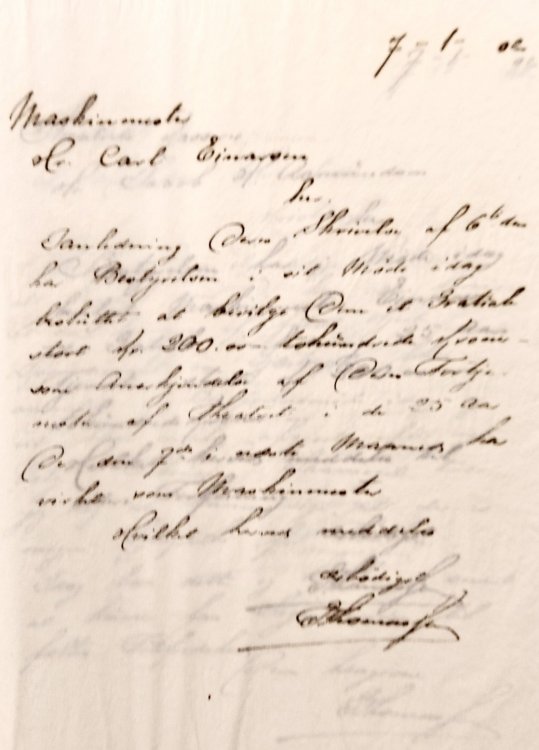 7-1-02
Maskinmester
Hr. Carl Ejnarsen
her.
I anledning Deres Skrivelse af 6te ds
har Bestyrelsen i sit Møde idag
besluttet at bevilge Dem et Gratiale
stort Kr. 200.00 tohundrede Kroner -
som Anerkjendelse af Deres Fortje-
nester af Theatret i de 25 Aar
De den 7de i næste Maaned har
virket som Maskinmester
Hvilket herved meddeles
Ærbødigst